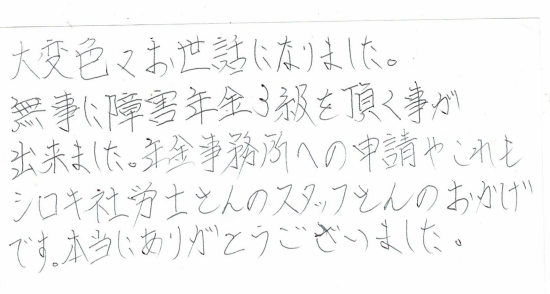 大変色々お世話になりました。
無事に障害年金3級を頂く事が
出来ました。年金事務所への申請やこれも
シロキ社労士さんのスタッフさんのおかげ
です。本当にありがとうございました。